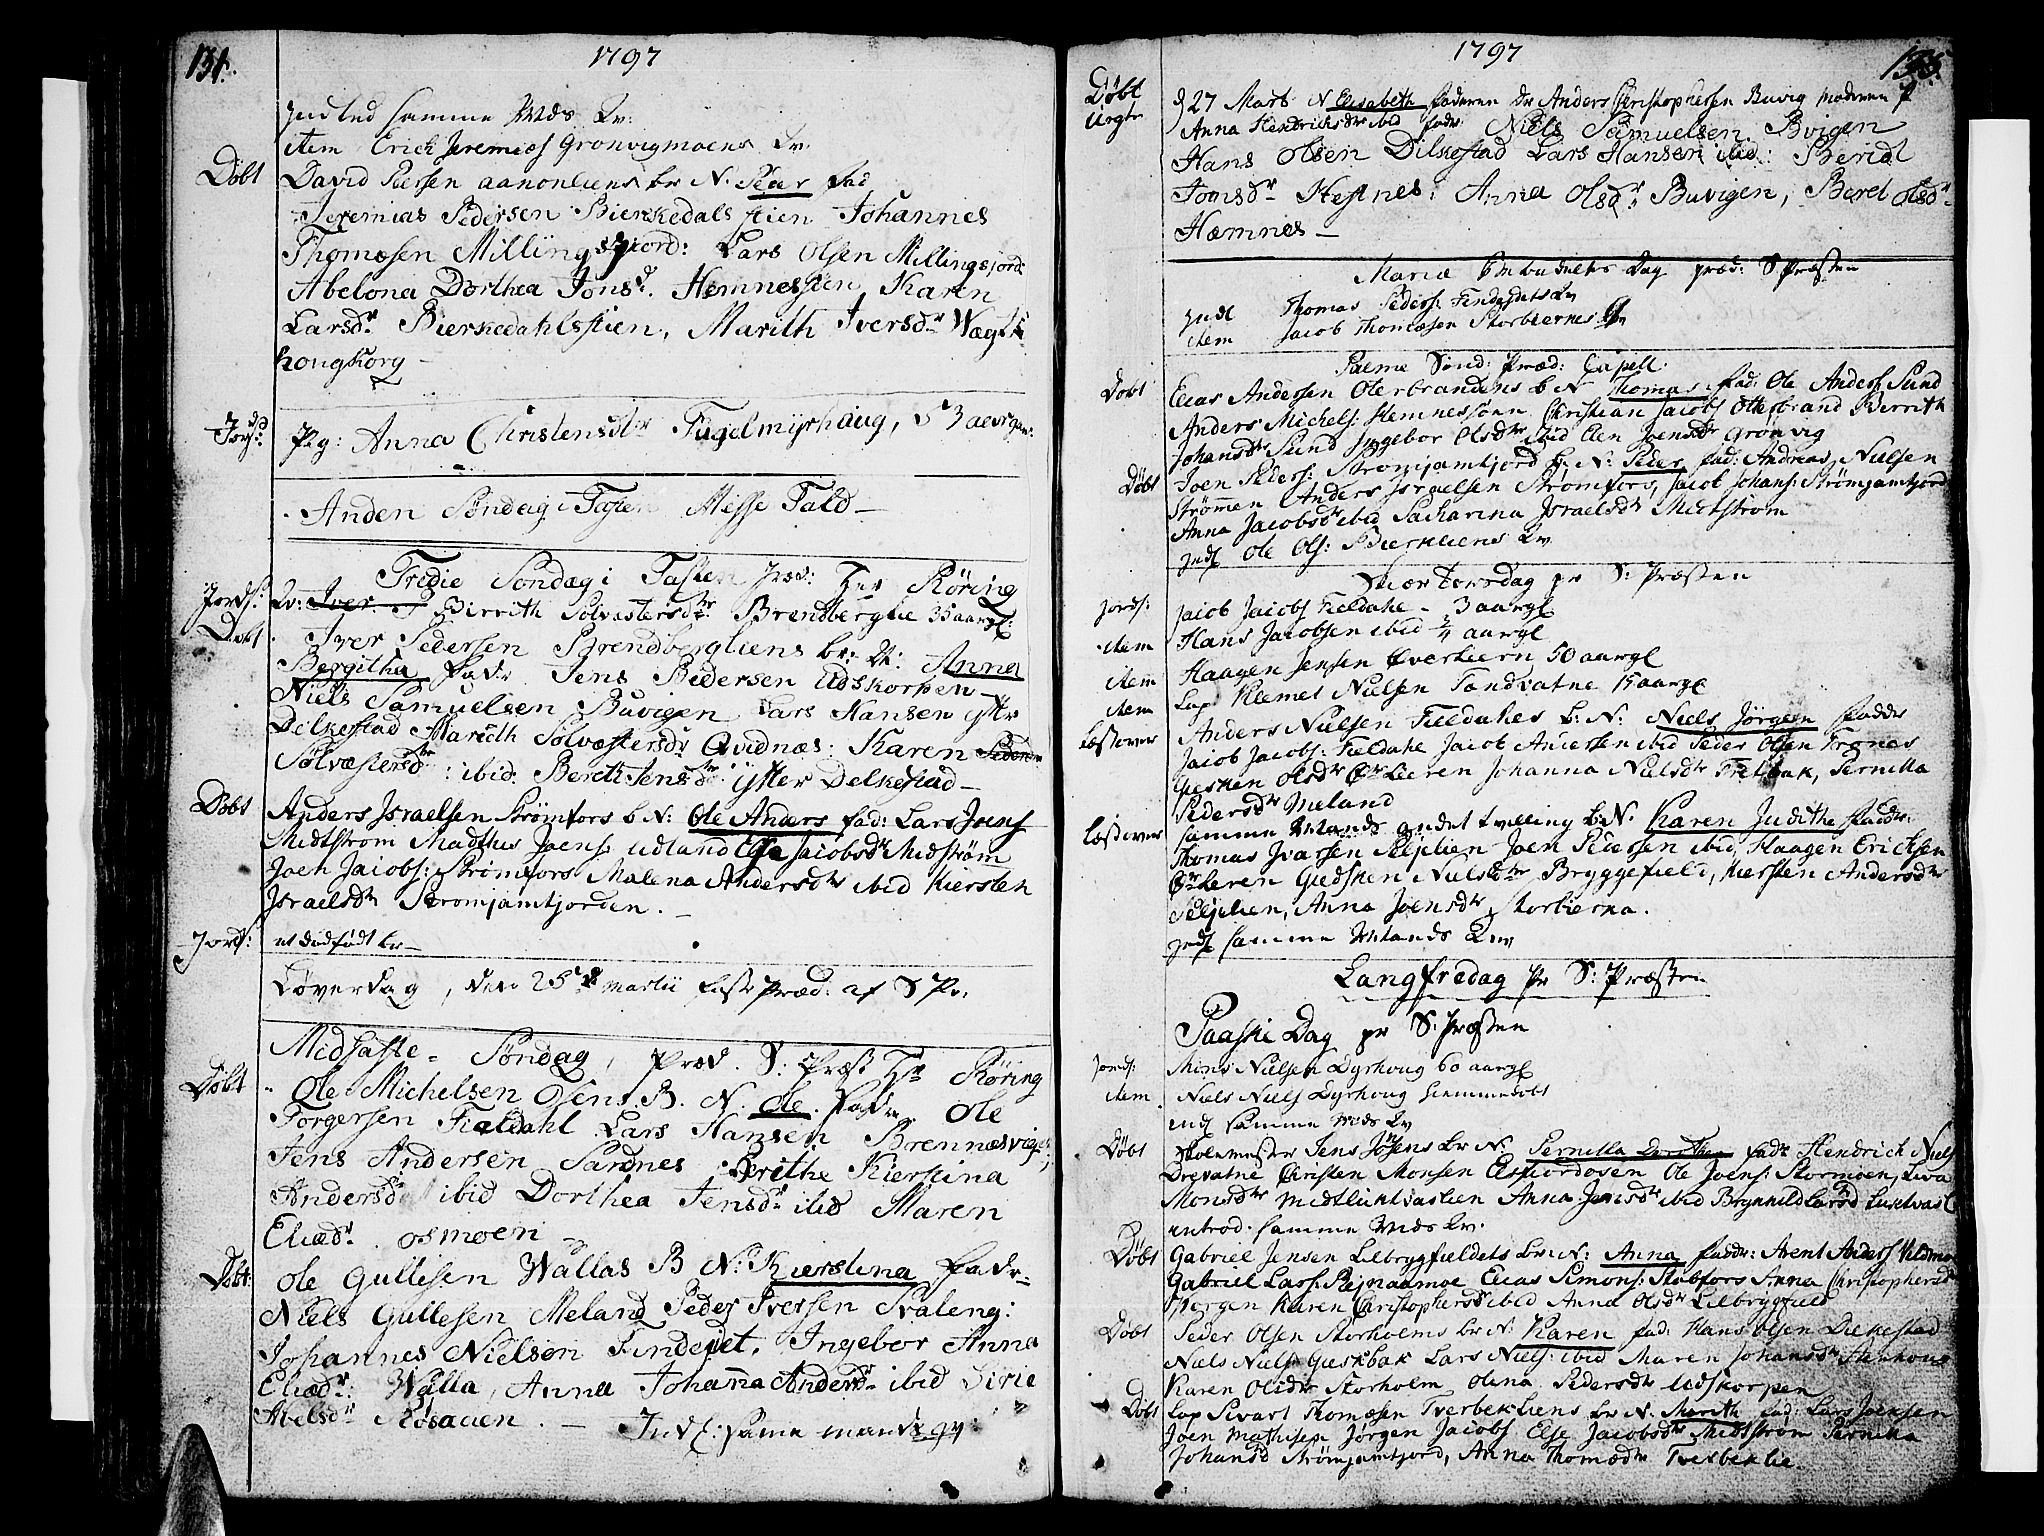 134.
1797
Indled samme Mds Kv:
item Erich Jeremias Grønvigmoens Kv.
Døbt David Persen aanonliens br N. Peder fad
Jeremias Pedersen Bierkedals stien Johannes
Thomesen Millingsfiord: Lars Olsen Millingsfjord
Abelona Dorthea Jonsd. Hemnessien, Karen
Larsdr Bierkedahlstien, Marith Iversdr
hongkorg
Jords: P.g: Anna Christensdtr Fugelmyrhaug, 3 aar g
Anden Søndag i Fasten Messe Fald
Tredie Søndag i Fasten Præd: Her Røring
Jords: Kv: Iver Birrith Solvestersdr Brendberglie 35 aarg:
Døbt Iver Pedersen Brendbergliens br: N: Anna
Bergitha Fadr Jens Pedersen Udskorpen
Niels Samuelsen Buvigen Lars Hansen ytter
Delkestad Marith Solvestersdr Qvidnæs: Karen
Solvestersdr: ibid. Bereth Jensdr: ytter Delkestad
Døbt Anders Israelsen Strømfors b N: Ole Anders fad: Lars Joens
Midtstrøm Madthis Joens: udland Else Jacobsdr Midstrøm
Joen Jacobs: Strømfors Malena Andersdtr ibid Kiersten
Israelsdr Strømjamtjorden.
Jords: et dødfødt br
Løverdag, den 25de martii Fastepræd: af S Pr.
Midfaste-Søndag, Præd. S: Præst Hr Røring
Døbt Ole Michelsen Osen. B. N. Ole. Fadr Ole
Torgersen Fieldahl Lars Hansen Brennesvigen
Jens Andersen Sandnes Berithe Kierstina
Andersdr ibid Dorthea Jensdr ibid Maren
Eliædr. osmoen
Døbt: Ole Gullesen Wallas B N: Kierstina Fadr
Niels Gullesen Meland Peder Iversen Svaleng:
Johannes Nielsen Finderet. Ingebor Anna
Eliædr: Walla, Anna Johanna Andersdr ibid Sirie
Abelsdr Røsaaen. — Indl: samme mands qv:
1797
135.
Døbt d 27 Mart: N Elisabeth faderen Dr Anders Christophersen Buvig moderen P
Uegte Anna Hendrichsdtr ibid fadr: Niels Samuelsen Bvigen
Hans Olsen Dilkestad Lars Hansen ibid: Berid
Jonsdr Hestnes: Anna Olsdr: Buvigen, Beret Olsdr
Hæmnes
Mariæ Bebudelses Dag præd: S. Præsten
Indl Thomas Peders: Finderets Kv
item Jacob Thomæsen Storbiernes
Palme Sønd: Præd: Capell.
Døbt Elias Andersen Oterbrandens b N Thomas. fad: Ole Anders: Sund
Anders Michels: Hemnessien Christian Jacobs Otterbrand Berrith
Johansdr Sund Ingebor Olsdr ibid Elen Joensdr Grønvig
Døbt Joen Peders: Strømjamtfjord b: N: Peder fad: Andreas Nielsen
Strømmen Anders Israelsen Strømfors, Jacob Johans: Strømjamtfjord
Anna Jacobsdr ibid Zacharina Israelsdr Midtstrøm
Indl Ole Ols: Bierkliens Kv
Skær Torsdag pr S: Præsten
Jords: Jacob Jacobs Fieldahl — 3 aargl
item Hans Jacobsen ibid aargl
item Haagen Jensen Øverleern 50 aargl
item Lap Klemet Nielsen Tandvatne 15 aargl
løstover Anders Nielsen Fieldahls b: N: Niels Jørgen Fadde
Jacob Jacobs: Fieldahl Jacob Andersen ibid Peder Olsen
Giesken Olsdr leeren Johanna Nielsdr Fretbak, Pernilla
Pedersdr Meland
løstover samme Mands andet tvilling b: N. Karen Judithe Fadde:
Thomas Ivarsen Seljelien Joen Pedersen ibid, Haagen Ericksen
leren Giedsken Nielsdr Bryggefield, Kiersten Andersdr
Seljelien, Anna Joensdr Storbierka.
Indl samme Mands Kv
Langfredag Pr S: Præsten
Paaske Dag pr S: Præsten
Jords: Nielsen Dyrhoug 60 aargl
item. Niels Niels Dyrhoug hiemmedøbt
indl samme Mds Kv
Døbt Skolemester Jens br N: Pernilla Dorthea fadr Hendrich Niels
Drevatne Christen Monsen Elsfiordosen Ole Joens: Stormoen, Siva
Monsdtr Midtlinhvaslien Anna Jensdr ibid Brynhild Larsd Luktvasl
introd: samme Mds Kv.
Døbt Gabriel Jensen Lilbrygfieldets br: N: Anna Fadde: Arent Anders
Gabriel Lars: Elias Simons: Stabfors Anna Christophersdr
Karen Christophersdr ibid Anna Olsdr Lilbrygfield
Døbt Peder Olsen Storholms br N: Karen fad: Hans Olsen Dilkestad
Niels Niels Gieskbak Lars Niels: ibid Maren Johansdr
Karen Olsdr Storholm Olena Pedersdr Udskorpen
Døbt Lap Sivart Thomæsen Tverbekliens br N. Marith fad: Lars Joensen
Joen Mathisen Jørgen Jacobs Else Jacobsdr Midtstrøm Pernilla
Johansd Strømjamtfjord, Anna Thomædr Tverbeklie.